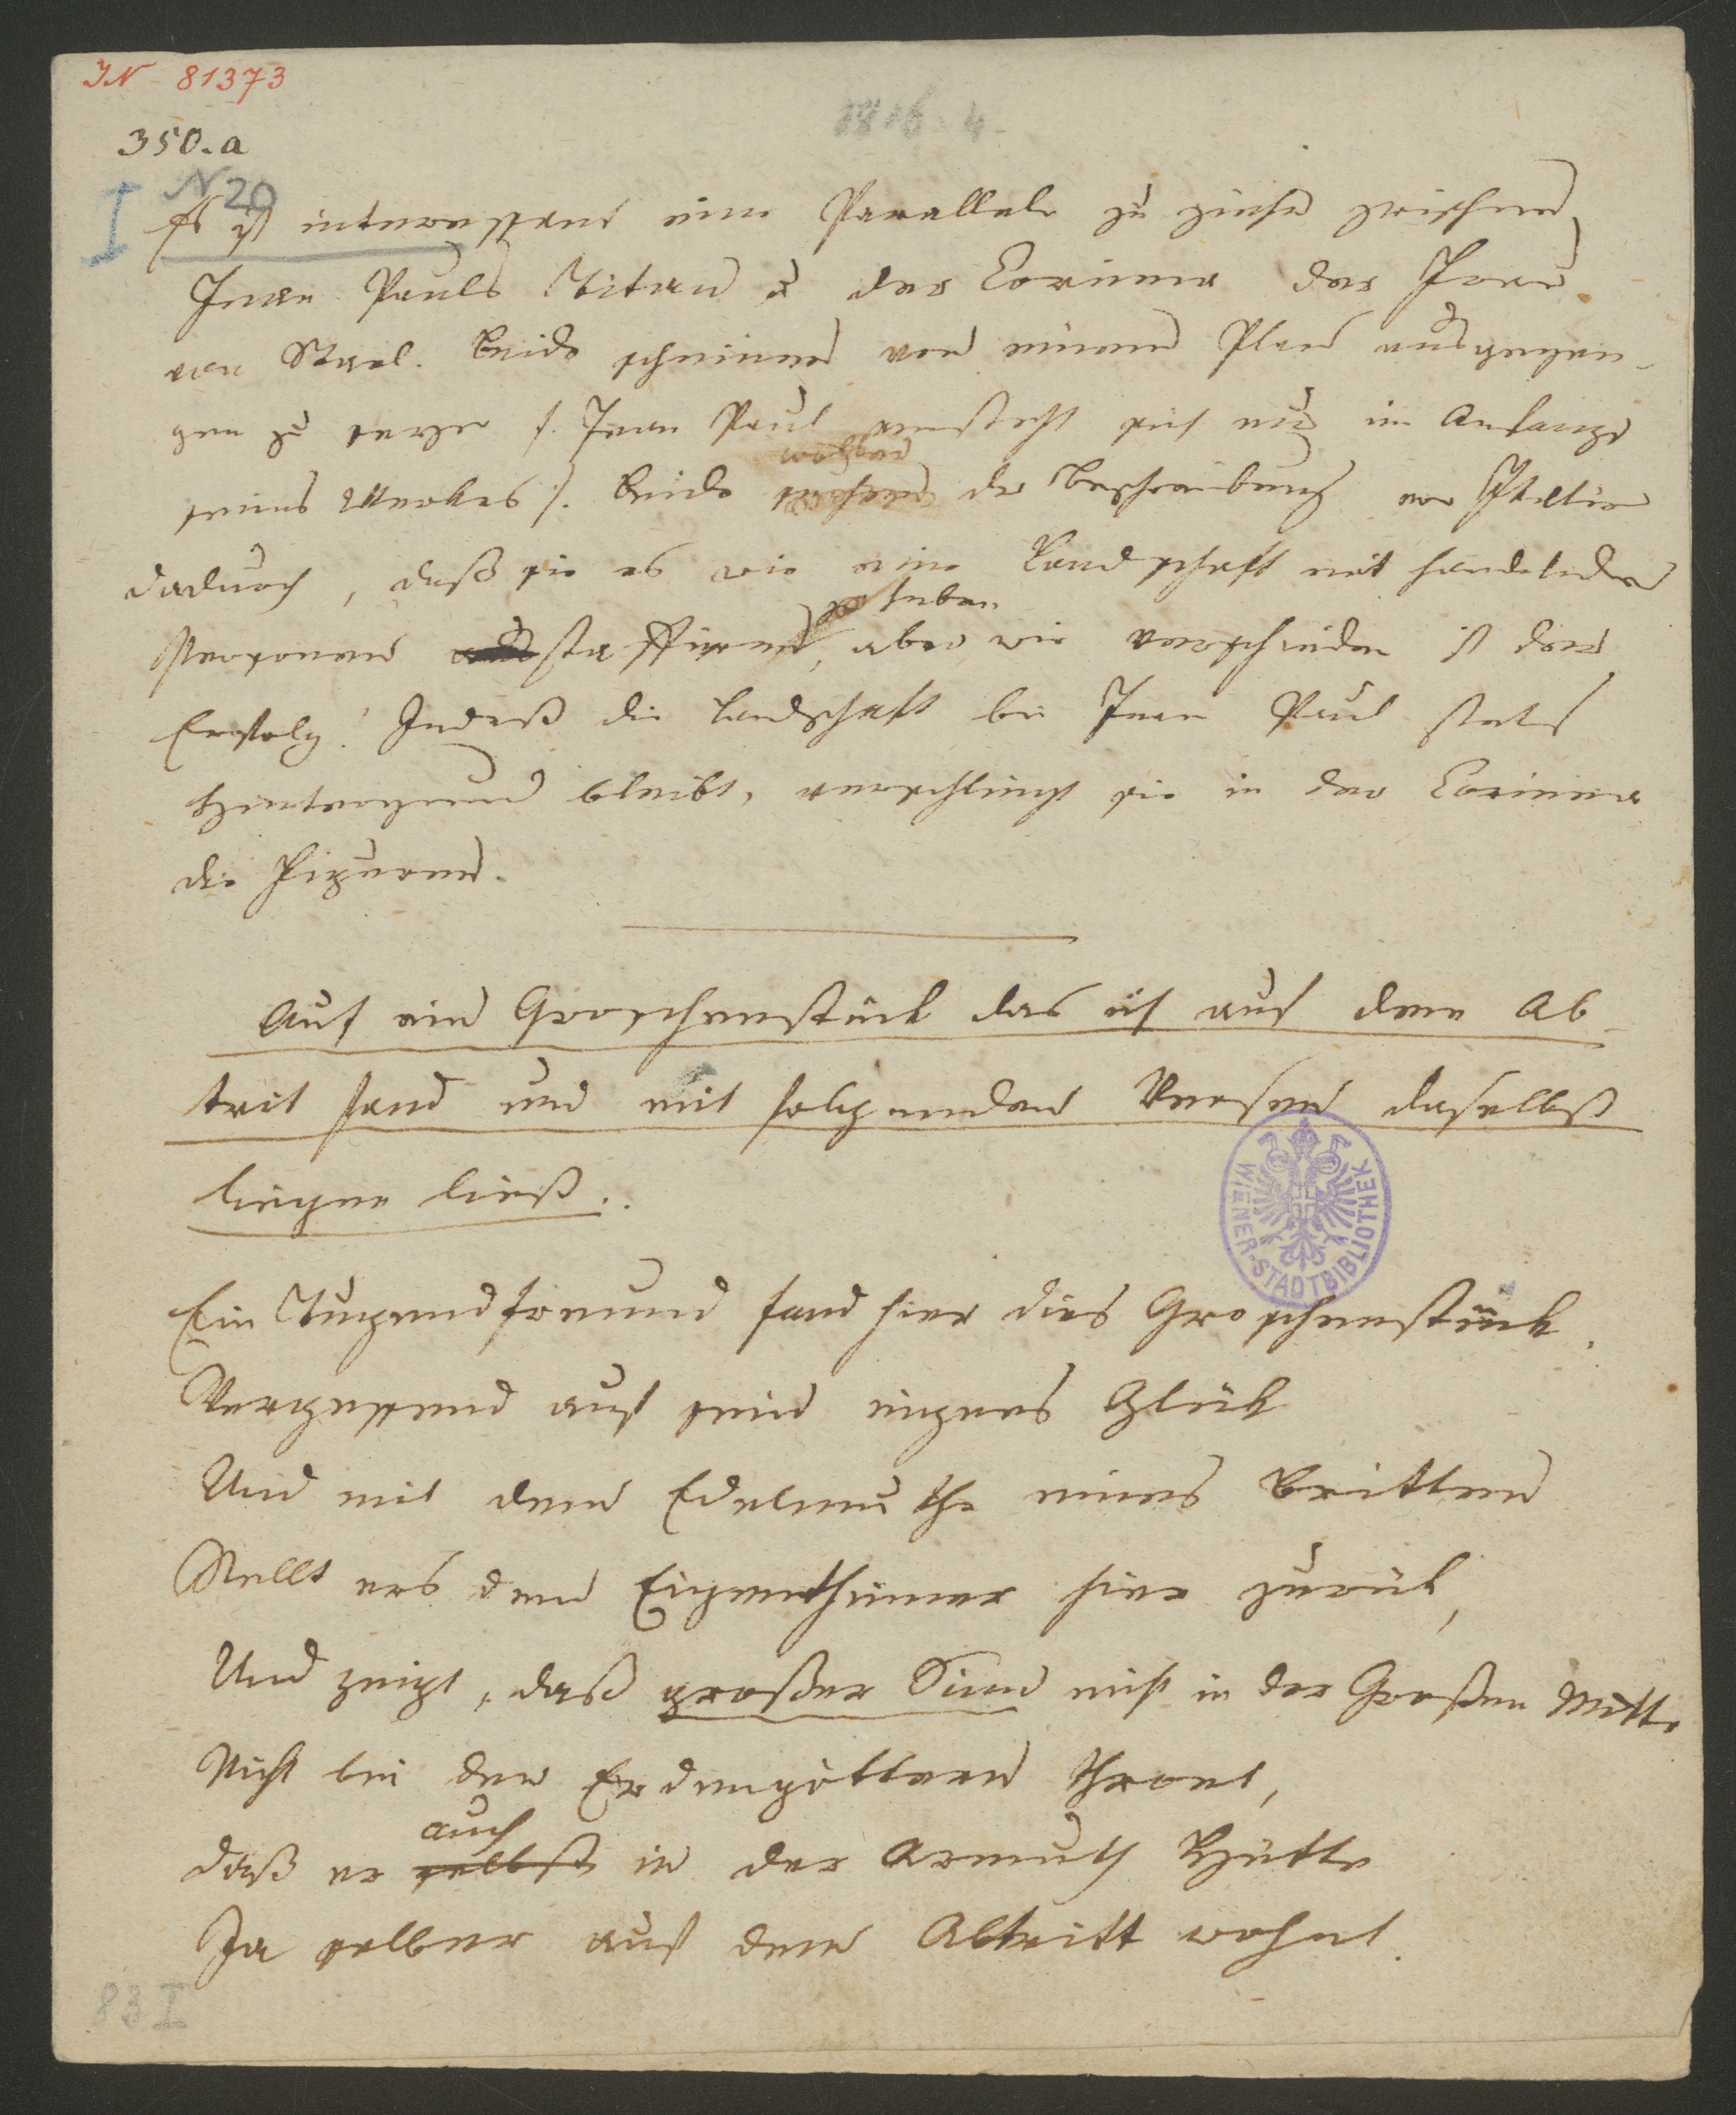 IN 81373
350.a
N 20
I
Es ist interessant eine Parallele zu ziehen zwischen
Jean Pauls Titan u der Corinna der Frau
von Stael. Beide scheinen von einem Plan ausgegan-
gen zu seyn /: Jean Paul versteht sich nur im Anfange
seines Werkes :/. Beide wollen der Beschreibung von Italien
dadurch, daß sie es wie eine Landschaft mit handelnden
Personen staffieren, heben
aber wie verschieden ist der
Erfolg! Indeß die Landschaft bei Jean Paul stets
Hintergrund bleibt, verschlingt sie in der Corinna
die Figuren.
Auf ein Groschenstück das ich auf dem Ab
trit fand und mit folgenden Versen daselbst
liegen ließ.
Ein Tugendfreund fand hier dies Groschenstück.
Vergessend auf sein eignes Glück
Und mit dem Edelmuthe eines Britten
Stellt ers dem Eigenthümer hier zurück,
Und zeigt, daß großer Sinn nicht in der Großen Mitte
Nicht bei den Erdengöttern thront,
auch
daß er selbst in der Armuth Hütte
Ja selber auf dem Abtritt wohnt.
WIENER STADTBIBLIOTHEK
83 I